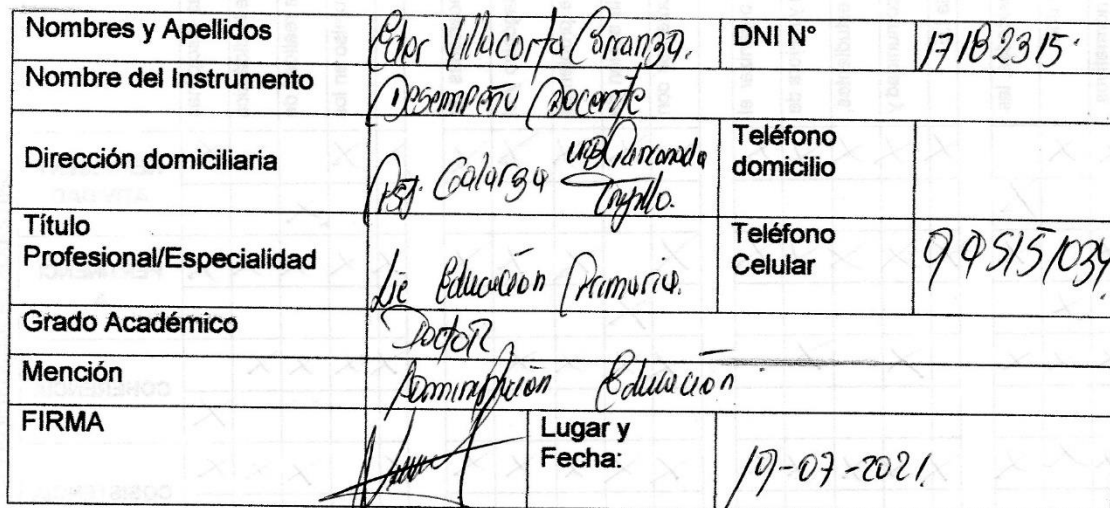 Nombres y Apellidos Eder Villacorta Carranza. DNI N° 17182315.
Nombre del Instrumento Desempeñu Docente
Dirección domiciliaria Psj. Galarza urb Rinconada Trujillo. Teléfono domicilio
Título Profesional/Especialidad Lic Educación Primaria. Teléfono Celular 995151034.
Grado Académico Doctor
Mención Administración Educación
FIRMA Lugar y Fecha: 19-07-2021.